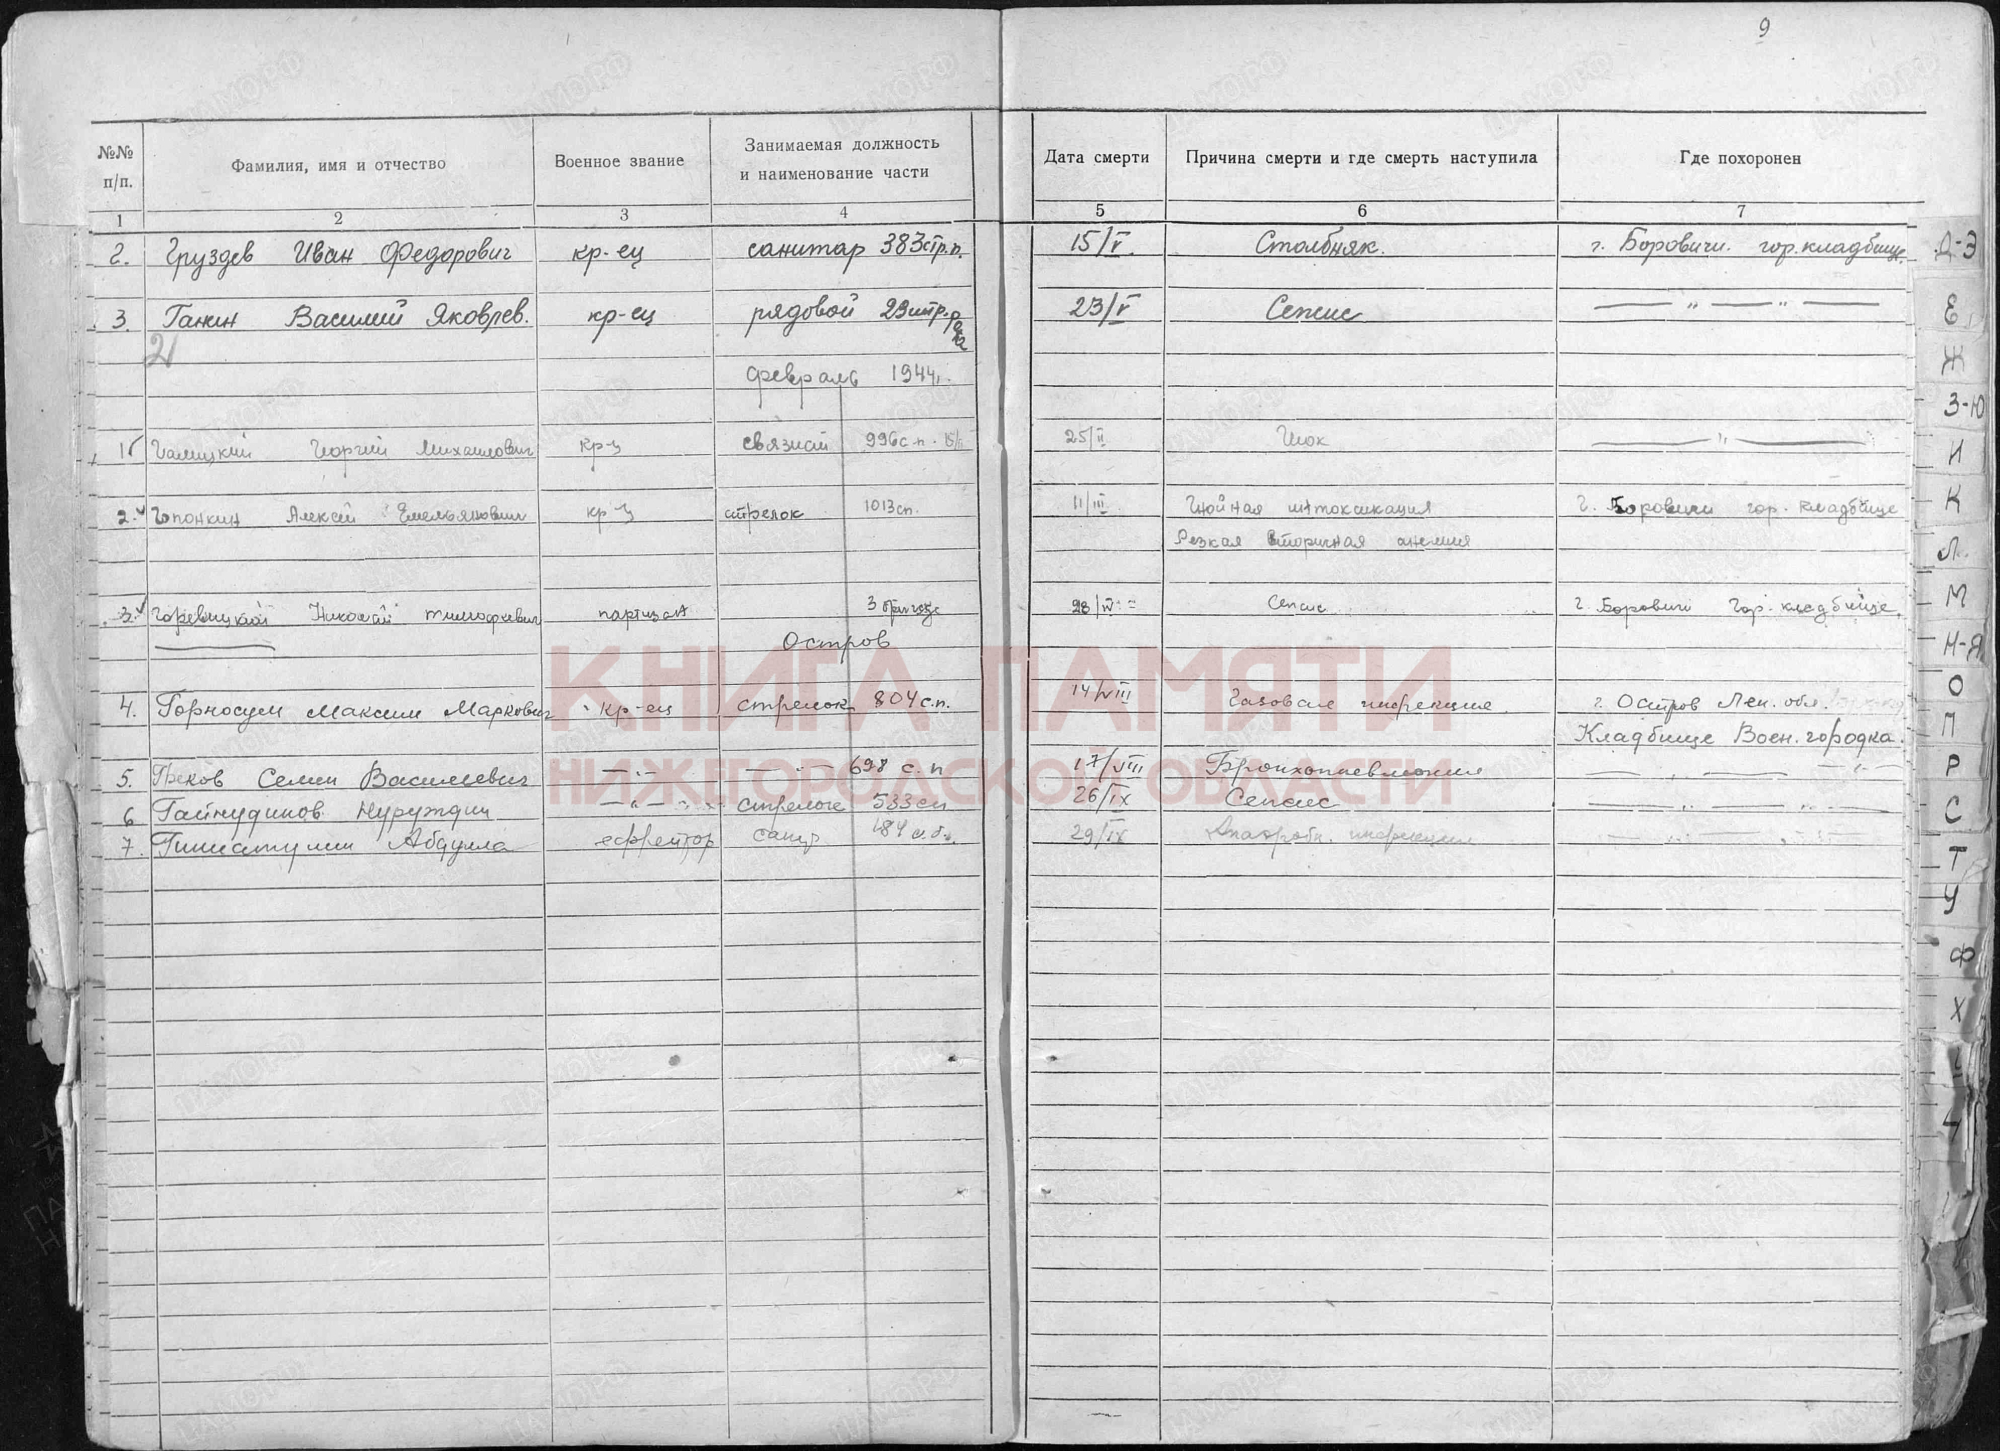 9
№№ п/п.
Фамилия, имя и отчество
Военное звание
Занимаемая должность и наименование части
Дата смерти
Причина смерти и где смерть наступила
Где похоронен
1 2 3 4 5 6 7
2. Груздев Иван Федорович кр-ец санитар 383 стр.п. 15/V. Столбняк. г. Боровичи. гор. кладбище.
3. Ганин Василий Яковлев. кр-ец рядовой 29 23/V Сепсис — " — " —
21
февраль 1944г.
1 Галицкий Георгий Михаилович кр-ц связист 996 с.п. 25/II Шок — " —
2. Гапонкин Алексей Емельянович кр-ц стрелок 1013 сп. 11/III Гнойная интоксикация г. Боровичи гор. кладбище
Резкая вторичная анемия
3. Горевицкий Николай Тимофеевич партизан 3 бригада 28/IV Сепсис г. Боровичи Гор. кладбище.
Остров
4. Горносул Максим Маркович кр-ец стрелок 804 с.п. 14/VIII Газовая инфекция. г. Остров Лен. обл.
Кладбище Воен. городка.
5. Греков Семен Васильевич — " — — " — 698 с.п 17/VIII Бронхопневмония — " — " —
6 Гайнудинов Нуруждин — " — стрелок 533 сп 26/IX Сепсис — " — " —
7. Гиниатулин Абдулла ефрейтор санит 184 с.б. 29/IX Анаэробн. инфекция — " — " —
Д-Э
Е
Ж
З-Ю
И
К
Л
М
Н-Я
О
П
Р
С
Т
У
Ф
Х
Ч
КНИГА ПАМЯТИ
НИЖЕГОРОДСКОЙ ОБЛАСТИ
ЦАМО.РФ